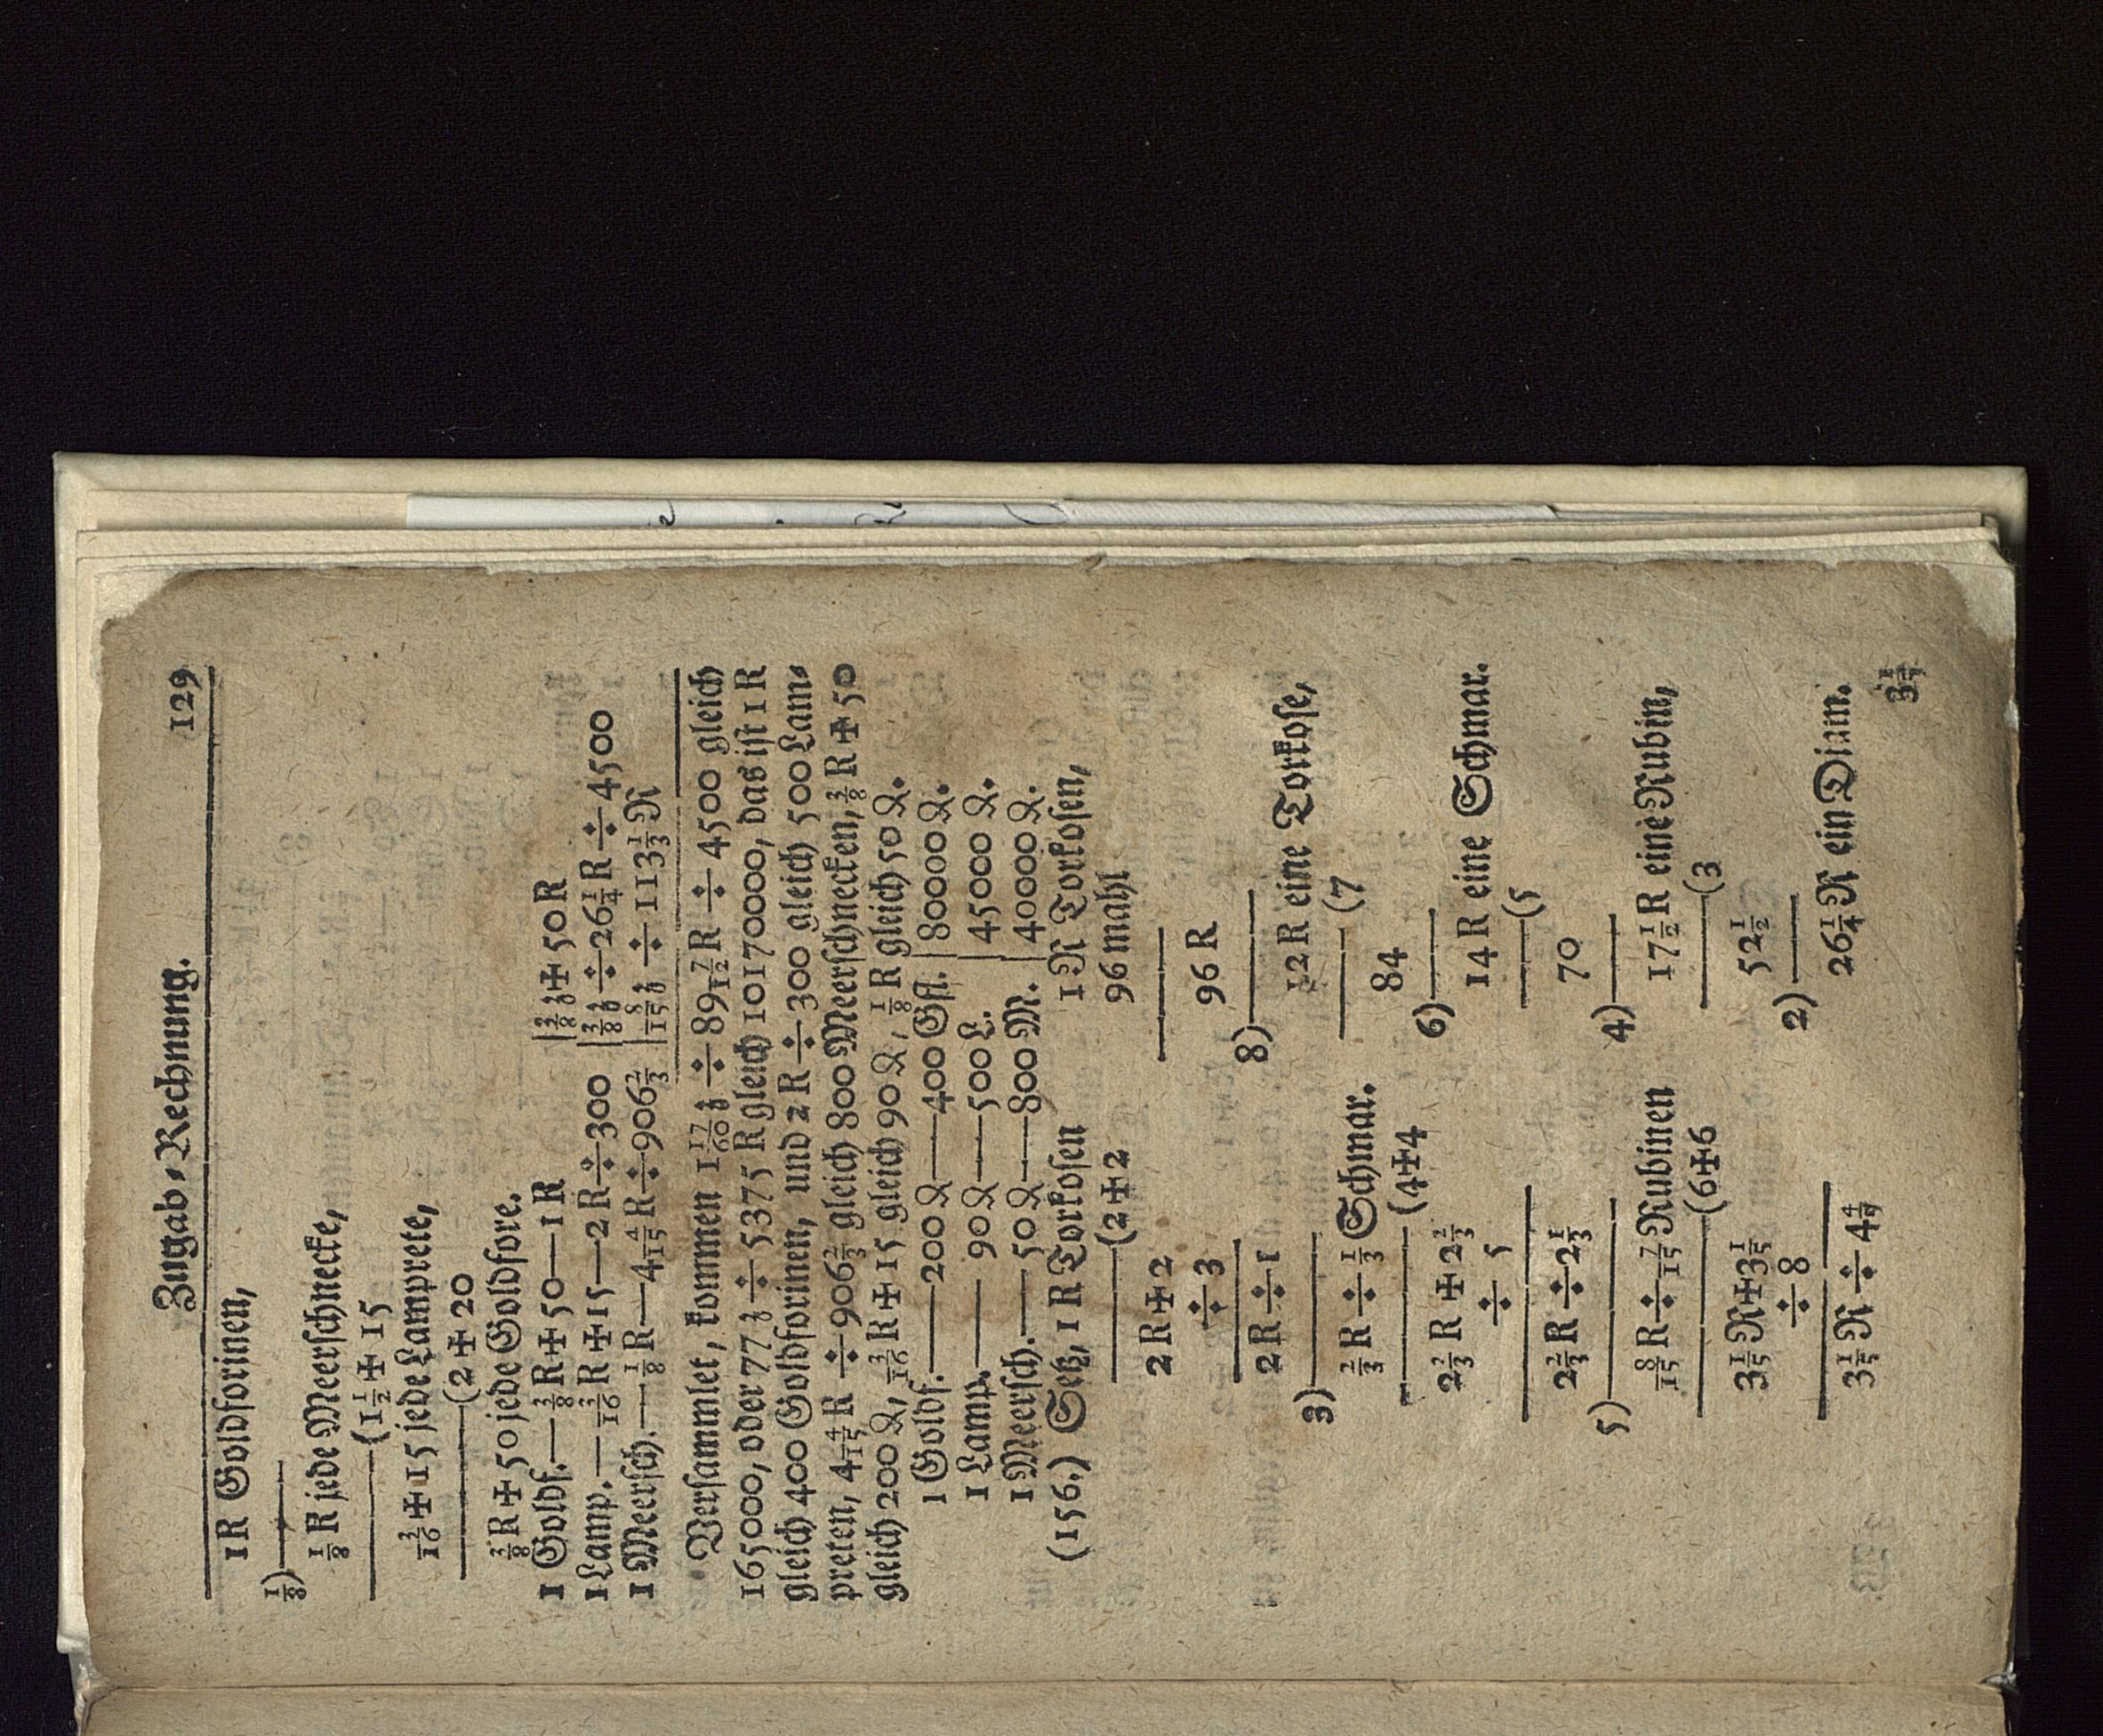 Zugab⸗Rechnung. 129
1 R Goldforinen,
1/8)
1/8 R jede Meerschnecke,
(1 1/2 ✠ 15
3/16 ✠ 15 jede Lamprete,
(2 ✠ 20
3/8 R ✠ 50 jede Goldfore.
1 Goldf.—3/8 R ✠ 50—1 R |3/8 ʒ ✠ 50 R
1 Lamp.—3/16 R ✠ 15—2 R ÷ 300 |3/8 ʒ ÷ 26 1/4 R ÷ 4500
1 Meersch.—1/8 R—4 4/15 R ÷ 906 2/3 |8/15 ʒ ÷ 113 1/3 R
Versammlet, kommen 1 17/60 ʒ ÷ 89 7/12 R ÷ 4500 gleich
165000, oder 77 ʒ ÷ 5375 R gleich 10170000, das ist 1 R
gleich 400 Goldforinen, und 2 R ÷ 300 gleich 500 Lam⸗
preten, 4 4/15 R ÷ 906 2/3 gleich 800 Meerschnecken, 3/8 R ✠ 50
gleich 200 R, 3/16 R ✠ 15 gleich 90 R, 1/8 R gleich 50 R.
1 Goldf.—200 R—400 Gfl. |80000 R.
1 Lamp.—90 R—500 L. |45000 R.
1 Meersch.—50 R—800 M. |40000 R.
(156.) Setz, 1 R Torkosen
(2 ✠ 2
2 R ✠ 2
÷ 3
2 R ÷ 1
3)
2/3 R ÷ 1/3 Schmar.
(4 ✠ 4
2 2/3 R ✠ 2 2/3
÷ 5
2 2/3 R ÷ 2 1/3
5)
8/15 R ÷ 7/15 Rubinen
(6 ✠ 6
3 1/5 R ✠ 3 1/5
÷ 8
3 1/5 R ÷ 4 4/9
1 R Torkosen,
96 mahl
96 R
8)
12 R eine Torkose,
(7
84
6)
14 R eine Schmar.
(5
70
4)
17 1/2 R eine Rubin,
(3
52 1/2
2)
26 1/4 R ein Diam.